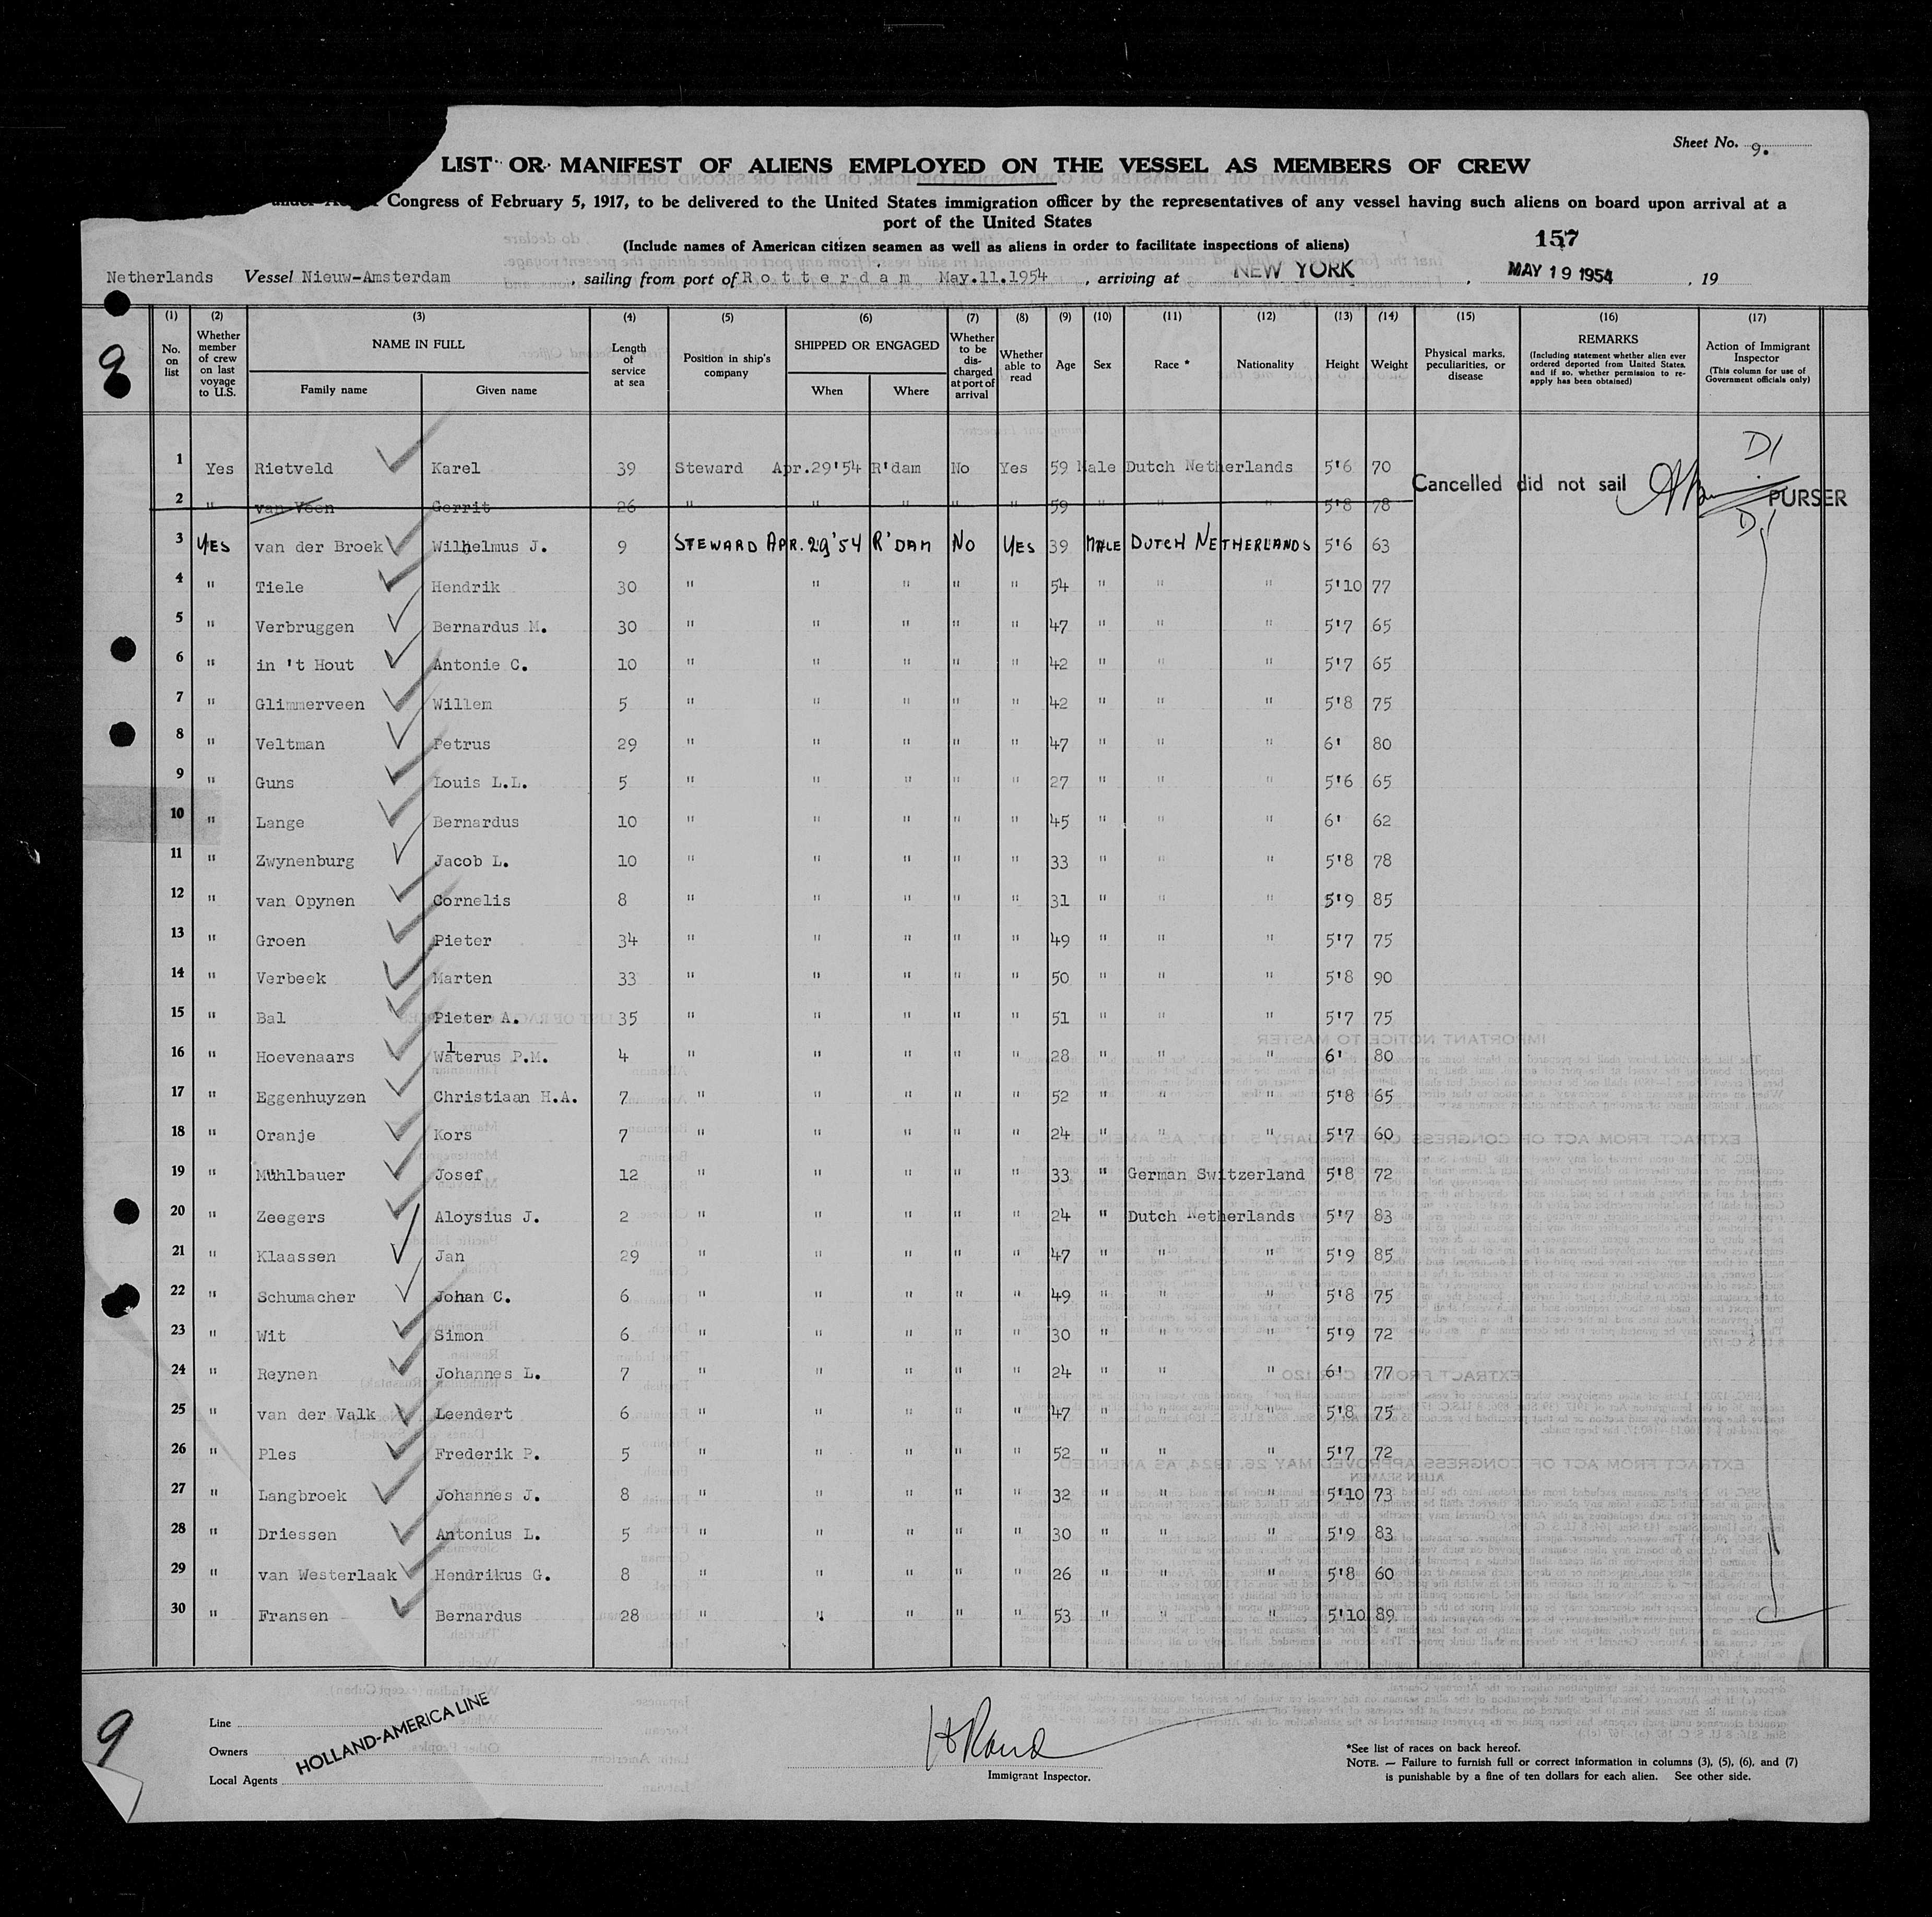 Sheet No. 9.
LIST OR MANIFEST OF ALIENS EMPLOYED ON THE VESSEL AS MEMBERS OF CREW
Congress of February 5, 1917, to be delivered to the United States immigration officer by the representatives of any vessel having such aliens on board upon arrival at a
port of the United States
(Include names of American citizen seamen as well as aliens in order to facilitate inspections of aliens)
157
Netherlands Vessel Nieuw-Amsterdam , sailing from port of Rotterdam May.11.1954 , arriving at NEW YORK , MAY 19 1954 , 19
(1) (2) (3) (4) (5) (6) (7) (8) (9) (10) (11) (12) (13) (14) (15) (16) (17)
No. on list
Whether member of crew on last voyage to U.S.
NAME IN FULL
Family name Given name
Length of service at sea
Position in ship's company
SHIPPED OR ENGAGED
When Where
Whether to be discharged at port of arrival
Whether able to read
Age Sex Race * Nationality Height Weight
Physical marks, peculiarities, or disease
REMARKS
(Including statement whether alien ever ordered deported from United States, and if so, whether permission to re-apply has been obtained)
Action of Immigrant Inspector
(This column for use of Government officials only)
1 Yes Rietveld Karel 39 Steward Apr.29'54 R'dam No Yes 59 Male Dutch Netherlands 5'6 70
2 " van Veen Gerrit 26 " " " " " 59 " " " 5'8 78 Cancelled did not sail PURSER
3 YES van der Broek Wilhelmus J. 9 STEWARD APR.29'54 R'DAM NO YES 39 MALE DUTCH NETHERLANDS 5'6 63
4 " Tiele Hendrik 30 " " " " " 54 " " " 5'10 77
5 " Verbruggen Bernardus M. 30 " " " " " 47 " " " 5'7 65
6 " in 't Hout Antonie C. 10 " " " " " 42 " " " 5'7 65
7 " Glimmerveen Willem 5 " " " " " 42 " " " 5'8 75
8 " Veltman Petrus 29 " " " " " 47 " " " 6' 80
9 " Guns Louis L.L. 5 " " " " " 27 " " " 5'6 65
10 " Lange Bernardus 10 " " " " " 45 " " " 6' 62
11 " Zwynenburg Jacob L. 10 " " " " " 33 " " " 5'8 78
12 " van Opynen Cornelis 8 " " " " " 31 " " " 5'9 85
13 " Groen Pieter 34 " " " " " 49 " " " 5'7 75
14 " Verbeek Marten 33 " " " " " 50 " " " 5'8 90
15 " Bal Pieter A. 35 " " " " " 51 " " " 5'7 75
16 " Hoevenaars Walterus P.M. 4 " " " " " 28 " " " 6' 80
17 " Eggenhuyzen Christiaan H.A. 7 " " " " " 52 " " " 5'8 65
18 " Oranje Kors 7 " " " " " 24 " " " 5'7 60
19 " Mühlbauer Josef 12 " " " " " 33 " German Switzerland 5'8 72
20 " Zeegers Aloysius J. 2 " " " " " 24 " Dutch Netherlands 5'7 83
21 " Klaassen Jan 29 " " " " " 47 " " " 5'9 85
22 " Schumacher Johan C. 6 " " " " " 49 " " " 5'8 75
23 " Wit Simon 6 " " " " " 30 " " " 5'9 72
24 " Reynen Johannes L. 7 " " " " " 24 " " " 6' 77
25 " van der Valk Leendert 6 " " " " " 47 " " " 5'8 75
26 " Ples Frederik P. 5 " " " " " 52 " " " 5'7 72
27 " Langbroek Johannes J. 8 " " " " " 32 " " " 5'10 73
28 " Driessen Antonius L. 5 " " " " " 30 " " " 5'9 83
29 " van Westerlaak Hendrikus G. 8 " " " " " 26 " " " 5'8 60
30 " Fransen Bernardus 28 " " " " " 53 " " " 5'10 89
9
Line
Owners
Local Agents
HOLLAND-AMERICA LINE
Immigrant Inspector.
*See list of races on back hereof.
NOTE. — Failure to furnish full or correct information in columns (3), (5), (6), and (7)
is punishable by a fine of ten dollars for each alien. See other side.